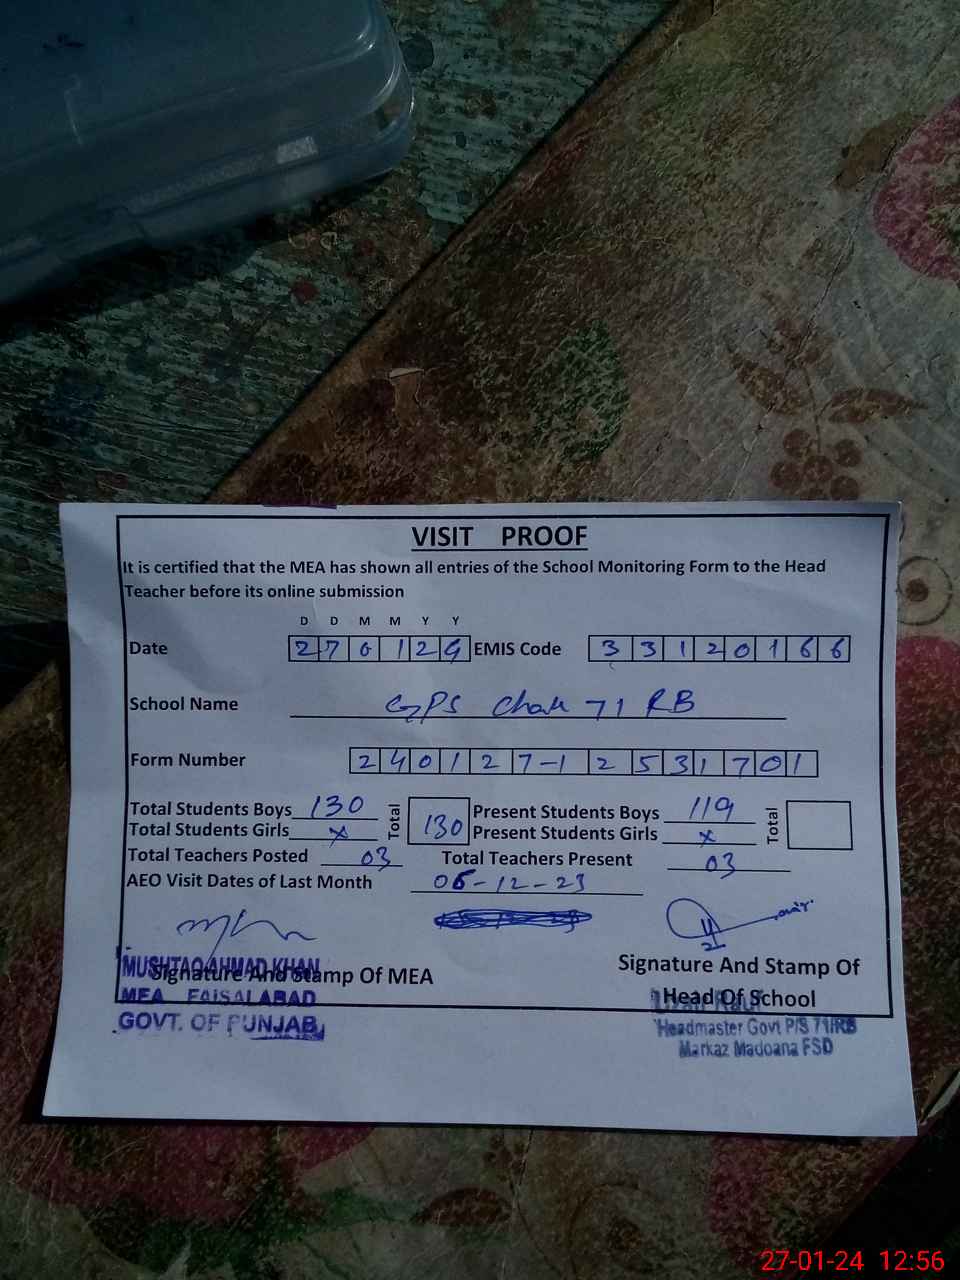 VISIT PROOF
It is certified that the MEA has shown all entries of the School Monitoring Form to the Head
Teacher before its online submission
D D M M Y Y
Date 270124 EMIS Code 33120166
School Name GPS Chak 71 RB
Form Number 240127-12531701
Total Students Boys 130 Total 130 Present Students Boys 119 Total
Total Students Girls x Present Students Girls x
Total Teachers Posted 03 Total Teachers Present 03
AEO Visit Dates of Last Month 06-12-23
Signature And Stamp Of MEA
MUSHTAQ AHMAD KHAN
MEA FAISALABAD
GOVT. OF PUNJAB
Signature And Stamp Of
Head Of School
Rauf
Headmaster Govt P/S 71/RB
Markaz Madoana FSD
27-01-24 12:56